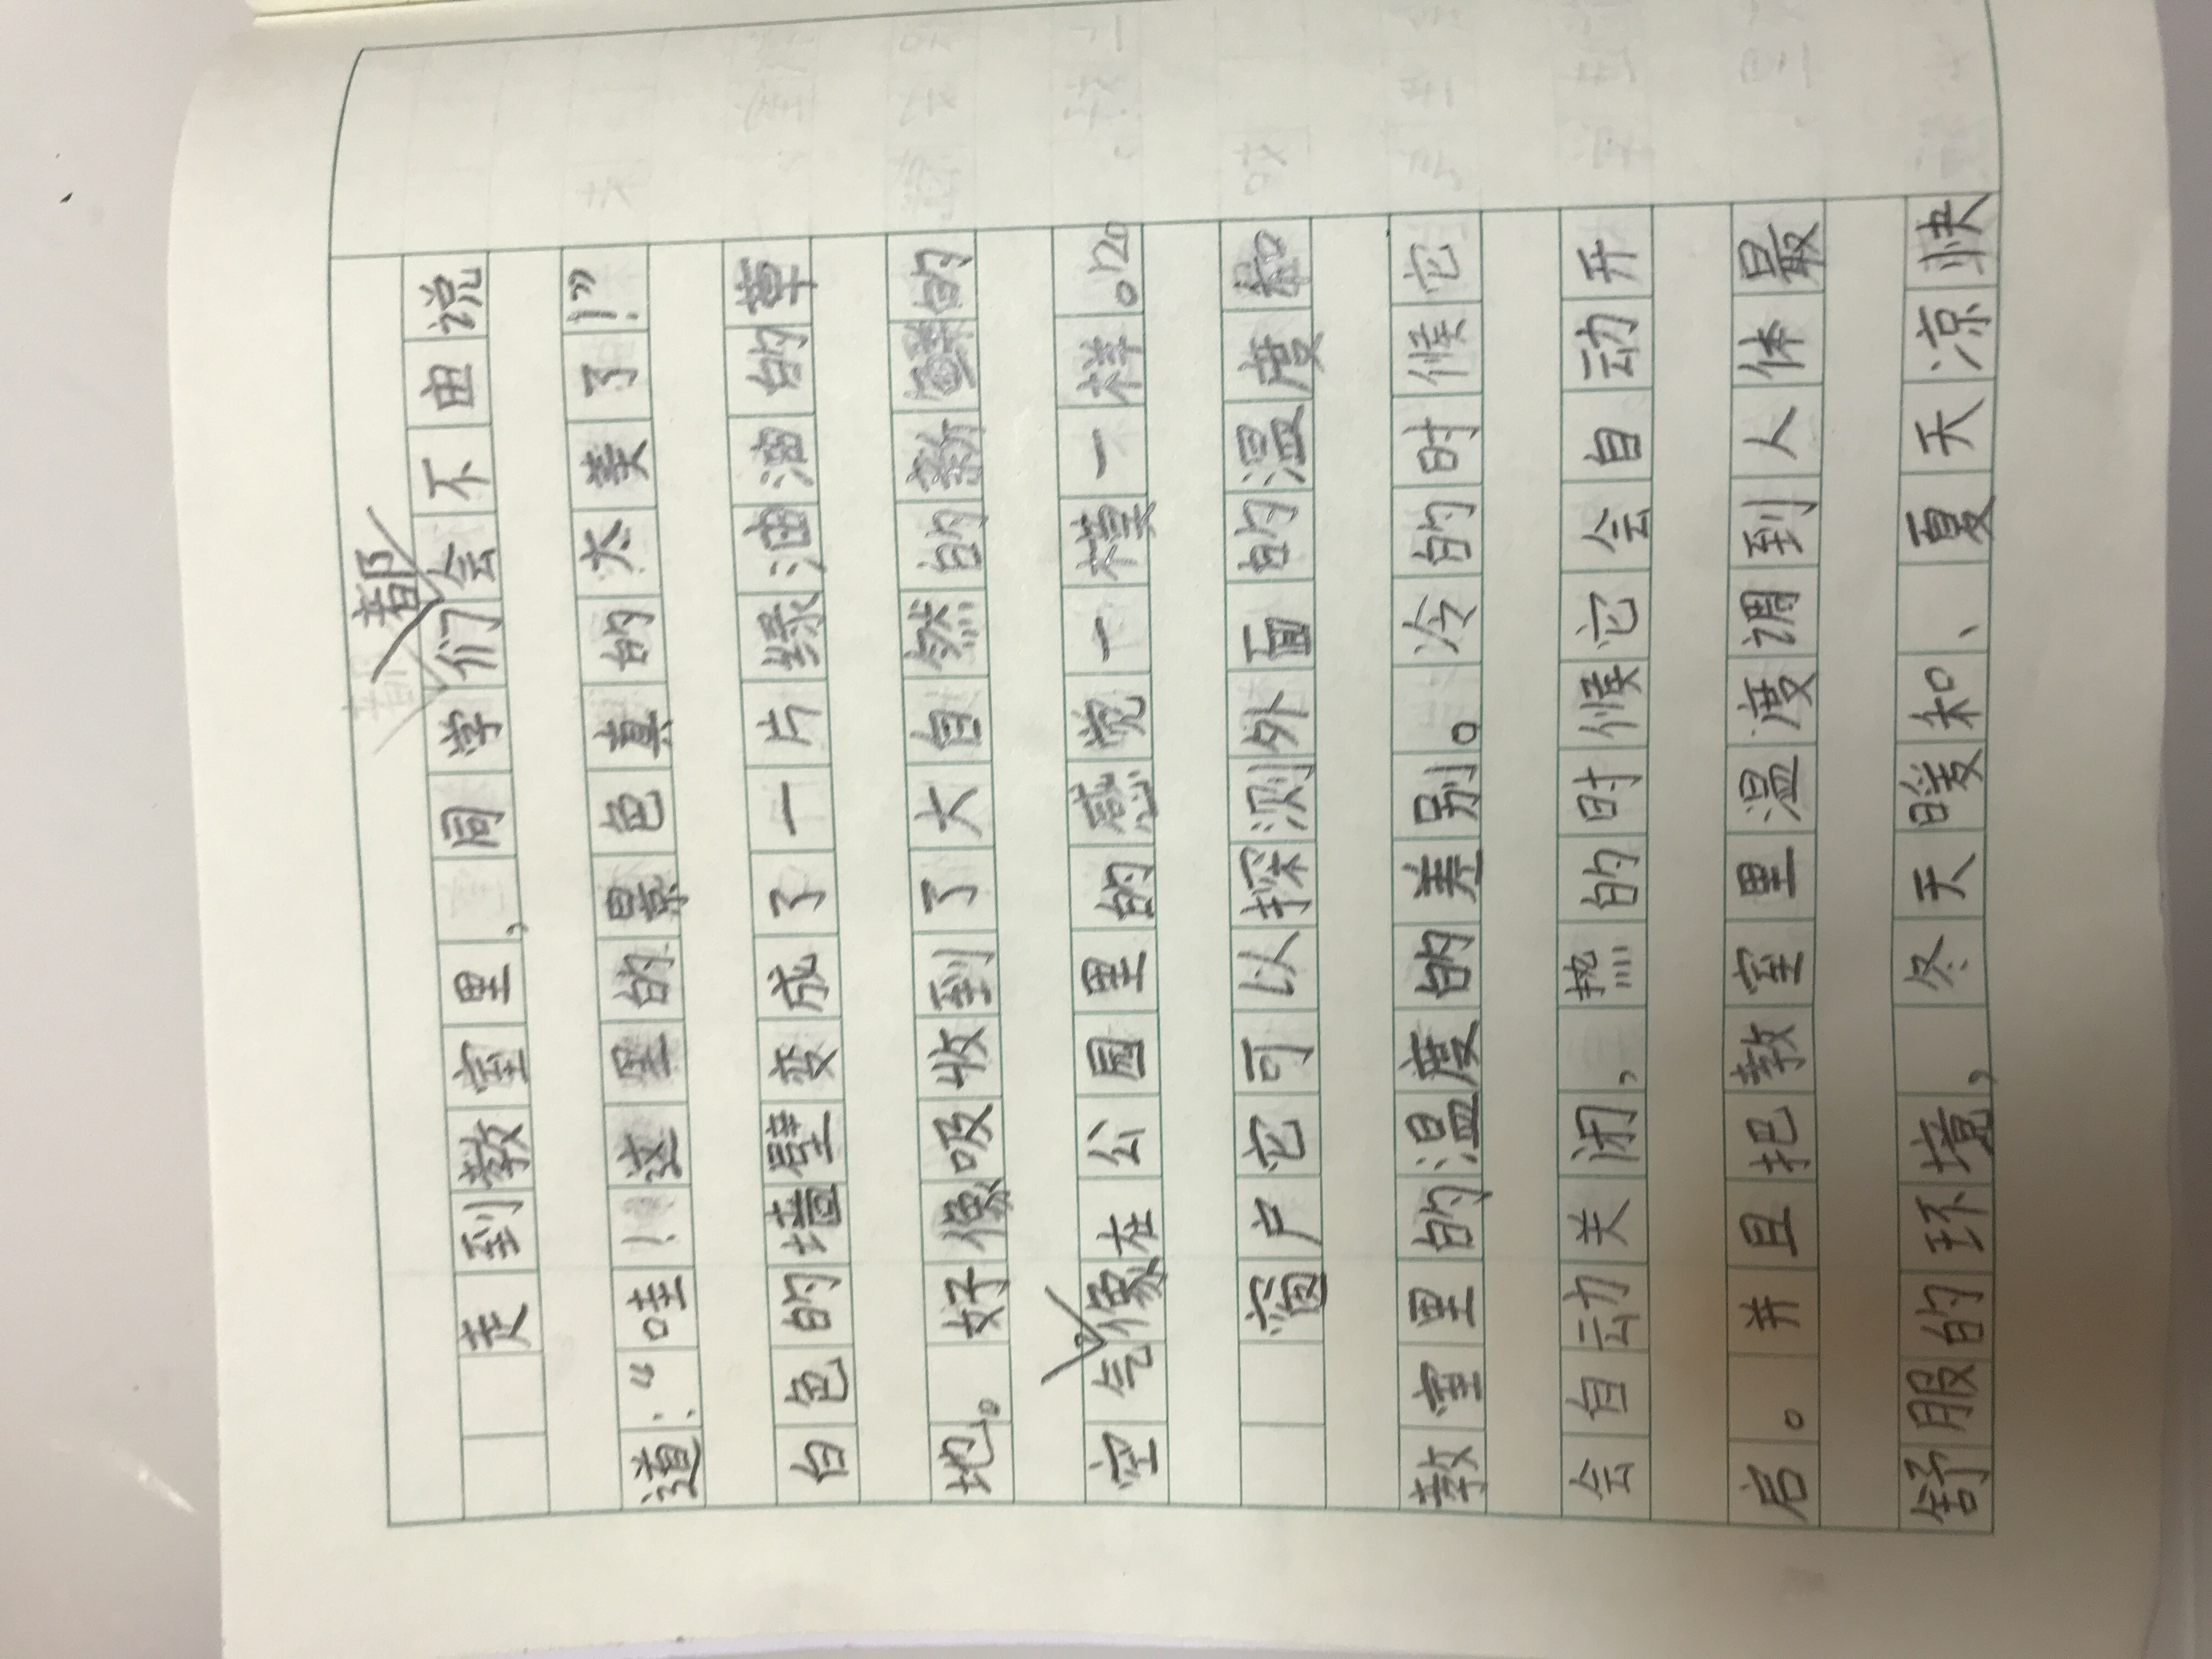 走到教室里,同学们都会不由说
道:“哇!这里的景色真的太美了!”
白色的墙壁变成了一片绿油油的草
地。好像吸收到了大自然的新鲜的
空气像在公园里的感觉一模一样。120
窗户它可以探测外面的温度和
教室里的温度的差别。冷的时候它
会自动关闭,热的时候它会自动开
启。并且把教室里温度调到人体最
舒服的环境,冬天暖和、夏天凉快